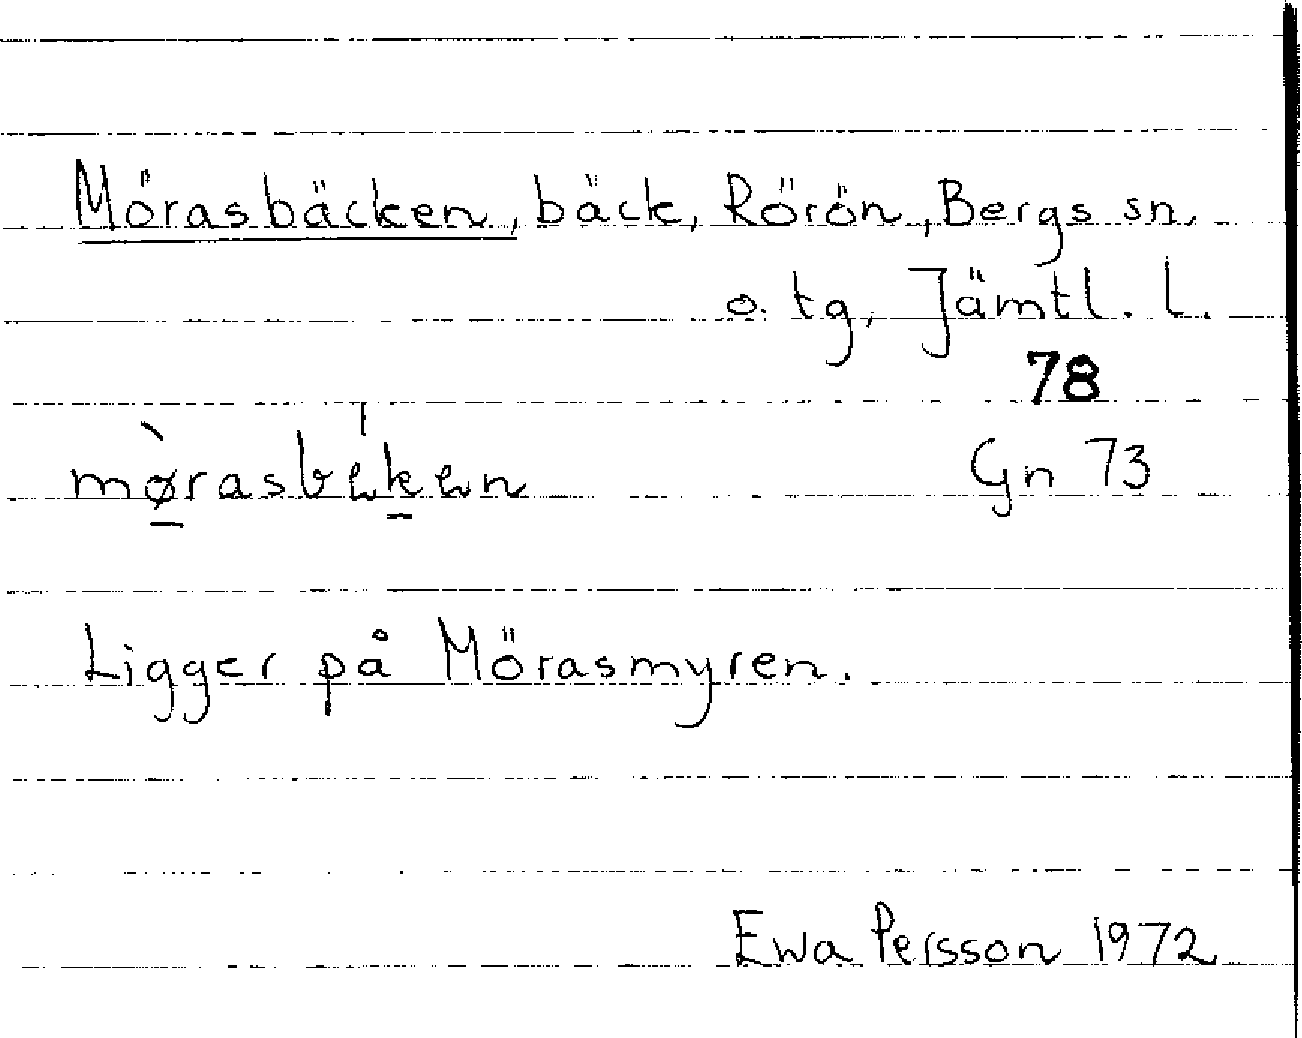 Mörasbäcken, bäck, Rörön, Bergs sn.
o. tg, Jämtl. l.
78
Gn 73
Ligger på Mörasmyren.
Ewa Persson 1972